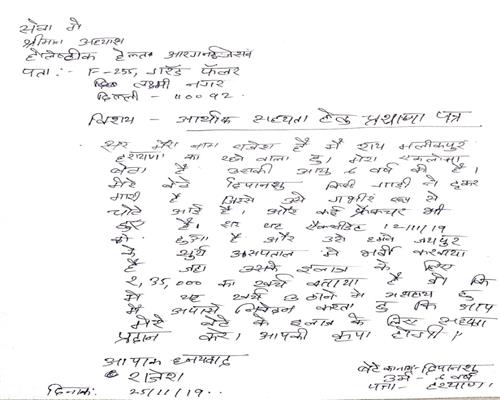 सेवा में
श्रीमान अध्यक्ष
होलिस्टीक हेल्थ आरगानाईजेशन
पता :- F-255, गराँउड फ्लोर
लक्ष्मी नगर
दिल्ली - 110092
विशय - आर्थीक सहायता हेतु प्रथाणा पत्र
सर मेरा नाम राजेश है मै गांव मलीकपुर
हरयाणा का रहने वाला हु। मेरा एकलौता
बेटा है उसकी आयु 6 वर्ष की है।
मेरे बेटे दिपानशु किसी गाडी ने टकर
मारी है जिसे उसे गंभीर रूप से
चोटे आई है। और कई फ्रेकचर भी
हुए है। सर यह ऐक्सीडेंट 12/11/19
को हुआ है और उसे हमने जयपुर
के सूर्या अस्पताल मे भर्ती करवाया
है जहा उसके इलाज के लिए
2,35,000 का खर्च बताया है जो कि
मै यह खर्च उठाने मे असहाय हु
मै आपसे निवेदन करता हु कि आप
मेरे बेटे के इलाज के लिए सहायता
प्रदान करे। आपकी कृपा होगी।
आपाक धन्यवाद
राजेश
दिनांक: 25/11/19..
बेटे का नाम:- दिपानशु
उम्र - 6 वर्ष
पता - हरयाणा